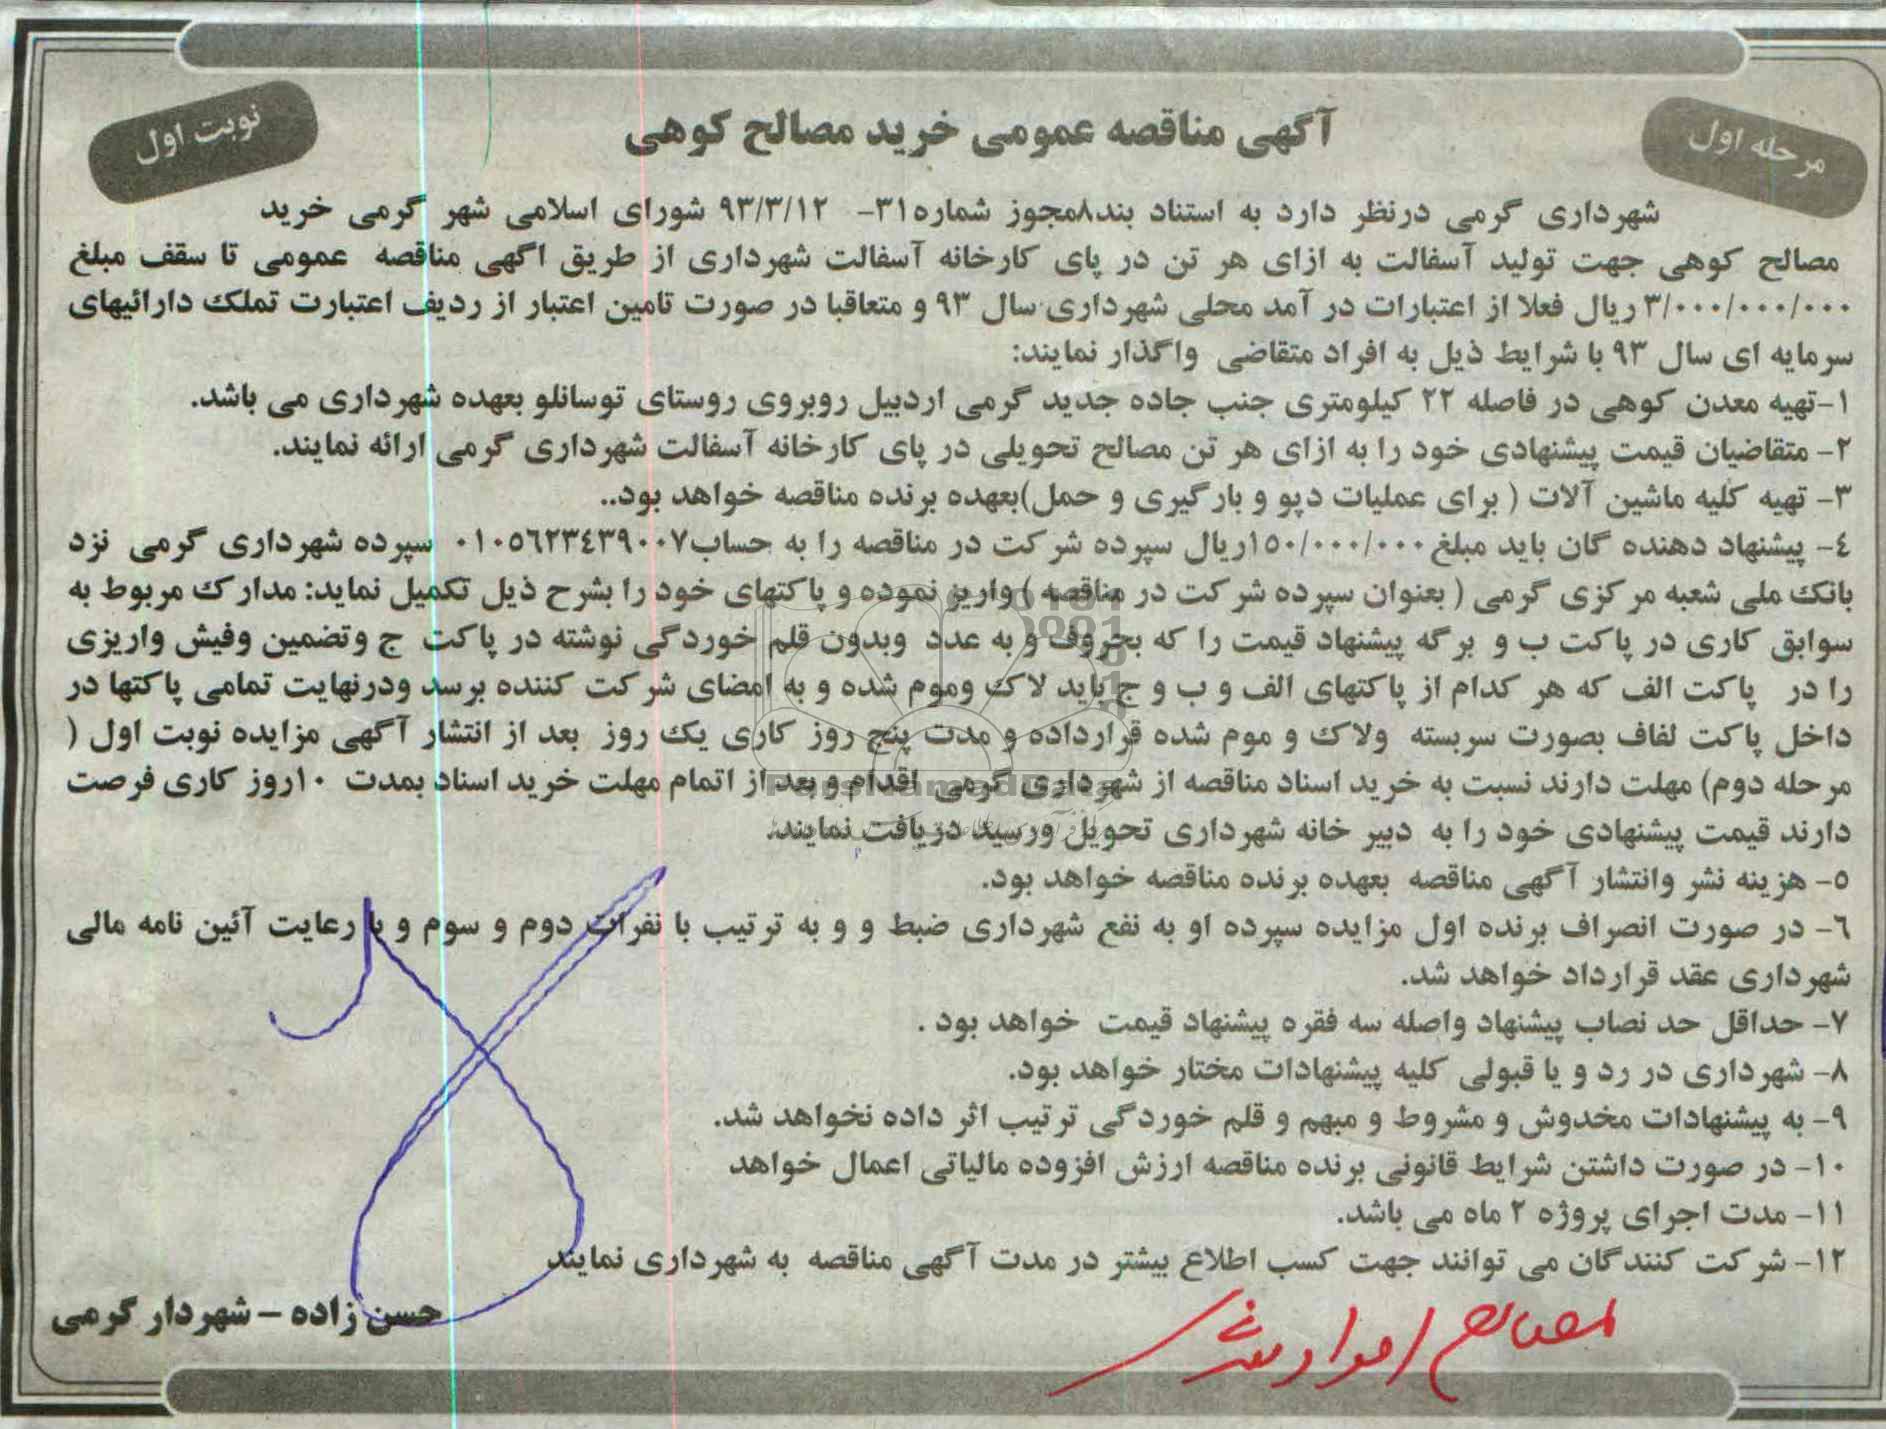 مرحله اول
آگهی مناقصه عمومی خرید مصالح کوهی
نوبت اول
شهرداری گرمی درنظر دارد به استناد بند۸مجوز شماره۳۱- ۹۳/۳/۱۲ شورای اسلامی شهر گرمی خرید
مصالح کوهی جهت تولید آسفالت به ازای هر تن در پای کارخانه آسفالت شهرداری از طریق اگهی مناقصه عمومی تا سقف مبلغ
۳/۰۰۰/۰۰۰/۰۰۰ ریال فعلا از اعتبارات در آمد محلی شهرداری سال ۹۳ و متعاقبا در صورت تامین اعتبار از ردیف اعتبارت تملک دارائیهای
سرمایه ای سال ۹۳ با شرایط ذیل به افراد متقاضی واگذار نمایند:
۱-تهیه معدن کوهی در فاصله ۲۲ کیلومتری جنب جاده جدید گرمی اردبیل روبروی روستای توسانلو بعهده شهرداری می باشد.
۲- متقاضیان قیمت پیشنهادی خود را به ازای هر تن مصالح تحویلی در پای کارخانه آسفالت شهرداری گرمی ارائه نمایند.
۳- تهیه کلیه ماشین آلات ( برای عملیات دپو و بارگیری و حمل)بعهده برنده مناقصه خواهد بود..
٤- پیشنهاد دهنده گان باید مبلغ ۱۵۰/۰۰۰/۰۰۰ریال سپرده شرکت در مناقصه را به حساب۰۱۰۵٦۲۳٤۳۹۰۰۷ سپرده شهرداری گرمی نزد
بانک ملی شعبه مرکزی گرمی ( بعنوان سپرده شرکت در مناقصه ) واریز نموده و پاکتهای خود را بشرح ذیل تکمیل نماید: مدارک مربوط به
سوابق کاری در پاکت ب و برگه پیشنهاد قیمت را که بحروف و به عدد وبدون قلم خوردگی نوشته در پاکت ج وتضمین وفیش واریزی
را در پاکت الف که هر کدام از پاکتهای الف و ب و ج باید لاک وموم شده و به امضای شرکت کننده برسد ودرنهایت تمامی پاکتها در
داخل پاکت لفاف بصورت سربسته ولاک و موم شده قرارداده و مدت پنج روز کاری یک روز بعد از انتشار آگهی مزایده نوبت اول (
مرحله دوم) مهلت دارند نسبت به خرید اسناد مناقصه از شهرداری گرمی اقدام و بعد از اتمام مهلت خرید اسناد بمدت ۱۰روز کاری فرصت
دارند قیمت پیشنهادی خود را به دبیر خانه شهرداری تحویل ورسید دریافت نمایند.
۵- هزینه نشر وانتشار آگهی مناقصه بعهده برنده مناقصه خواهد بود.
٦- در صورت انصراف برنده اول مزایده سپرده او به نفع شهرداری ضبط و و به ترتیب با نفرات دوم و سوم و با رعایت آئین نامه مالی
شهرداری عقد قرارداد خواهد شد.
۷- حداقل حد نصاب پیشنهاد واصله سه فقره پیشنهاد قیمت خواهد بود .
۸- شهرداری در رد و یا قبولی کلیه پیشنهادات مختار خواهد بود.
۹- به پیشنهادات مخدوش و مشروط و مبهم و قلم خوردگی ترتیب اثر داده نخواهد شد.
۱۰- در صورت داشتن شرایط قانونی برنده مناقصه ارزش افزوده مالیاتی اعمال خواهد
۱۱- مدت اجرای پروژه ۲ ماه می باشد.
۱۲- شرکت کنندگان می توانند جهت کسب اطلاع بیشتر در مدت آگهی مناقصه به شهرداری نمایند
حسن زاده – شهردار گرمی
مصالح / مواد معدنی